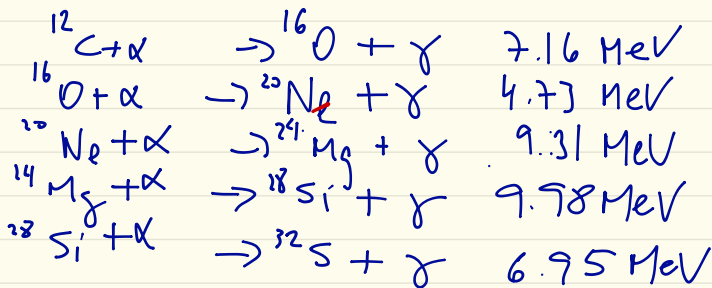 ¹²C + α → ¹⁶O + γ 7.16 MeV
¹⁶O + α → ²⁰Ne + γ 4.73 MeV
²⁰Ne + α → ²⁴Mg + γ 9.31 MeV
²⁴Mg + α → ²⁸Si + γ 9.98 MeV
²⁸Si + α → ³²S + γ 6.95 MeV